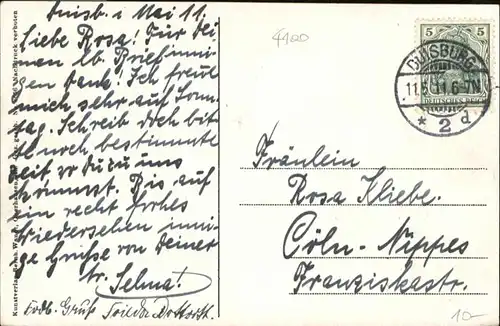 Duisb. i Mai 11.
Liebe Rosa! Für dei-
nen lb. Brief inni-
gen Dank! Ich freue
mich sehr auf Sonn-
tag. Schreib doch bit-
te noch bestimmte
Zeit wo du zu uns
kommst. Bis auf
ein recht frohes
Wiedersehen inni-
ge Grüße von deiner
tr. Selma!
Frdl. Gruß
4100
5 5
DUISBURG
11.5.11.6-7N.
* 2 d
DEUTSCHES REICH
Fräulein
Rosa Kliebe.
Cöln-Nippes
Franziskastr.
10-